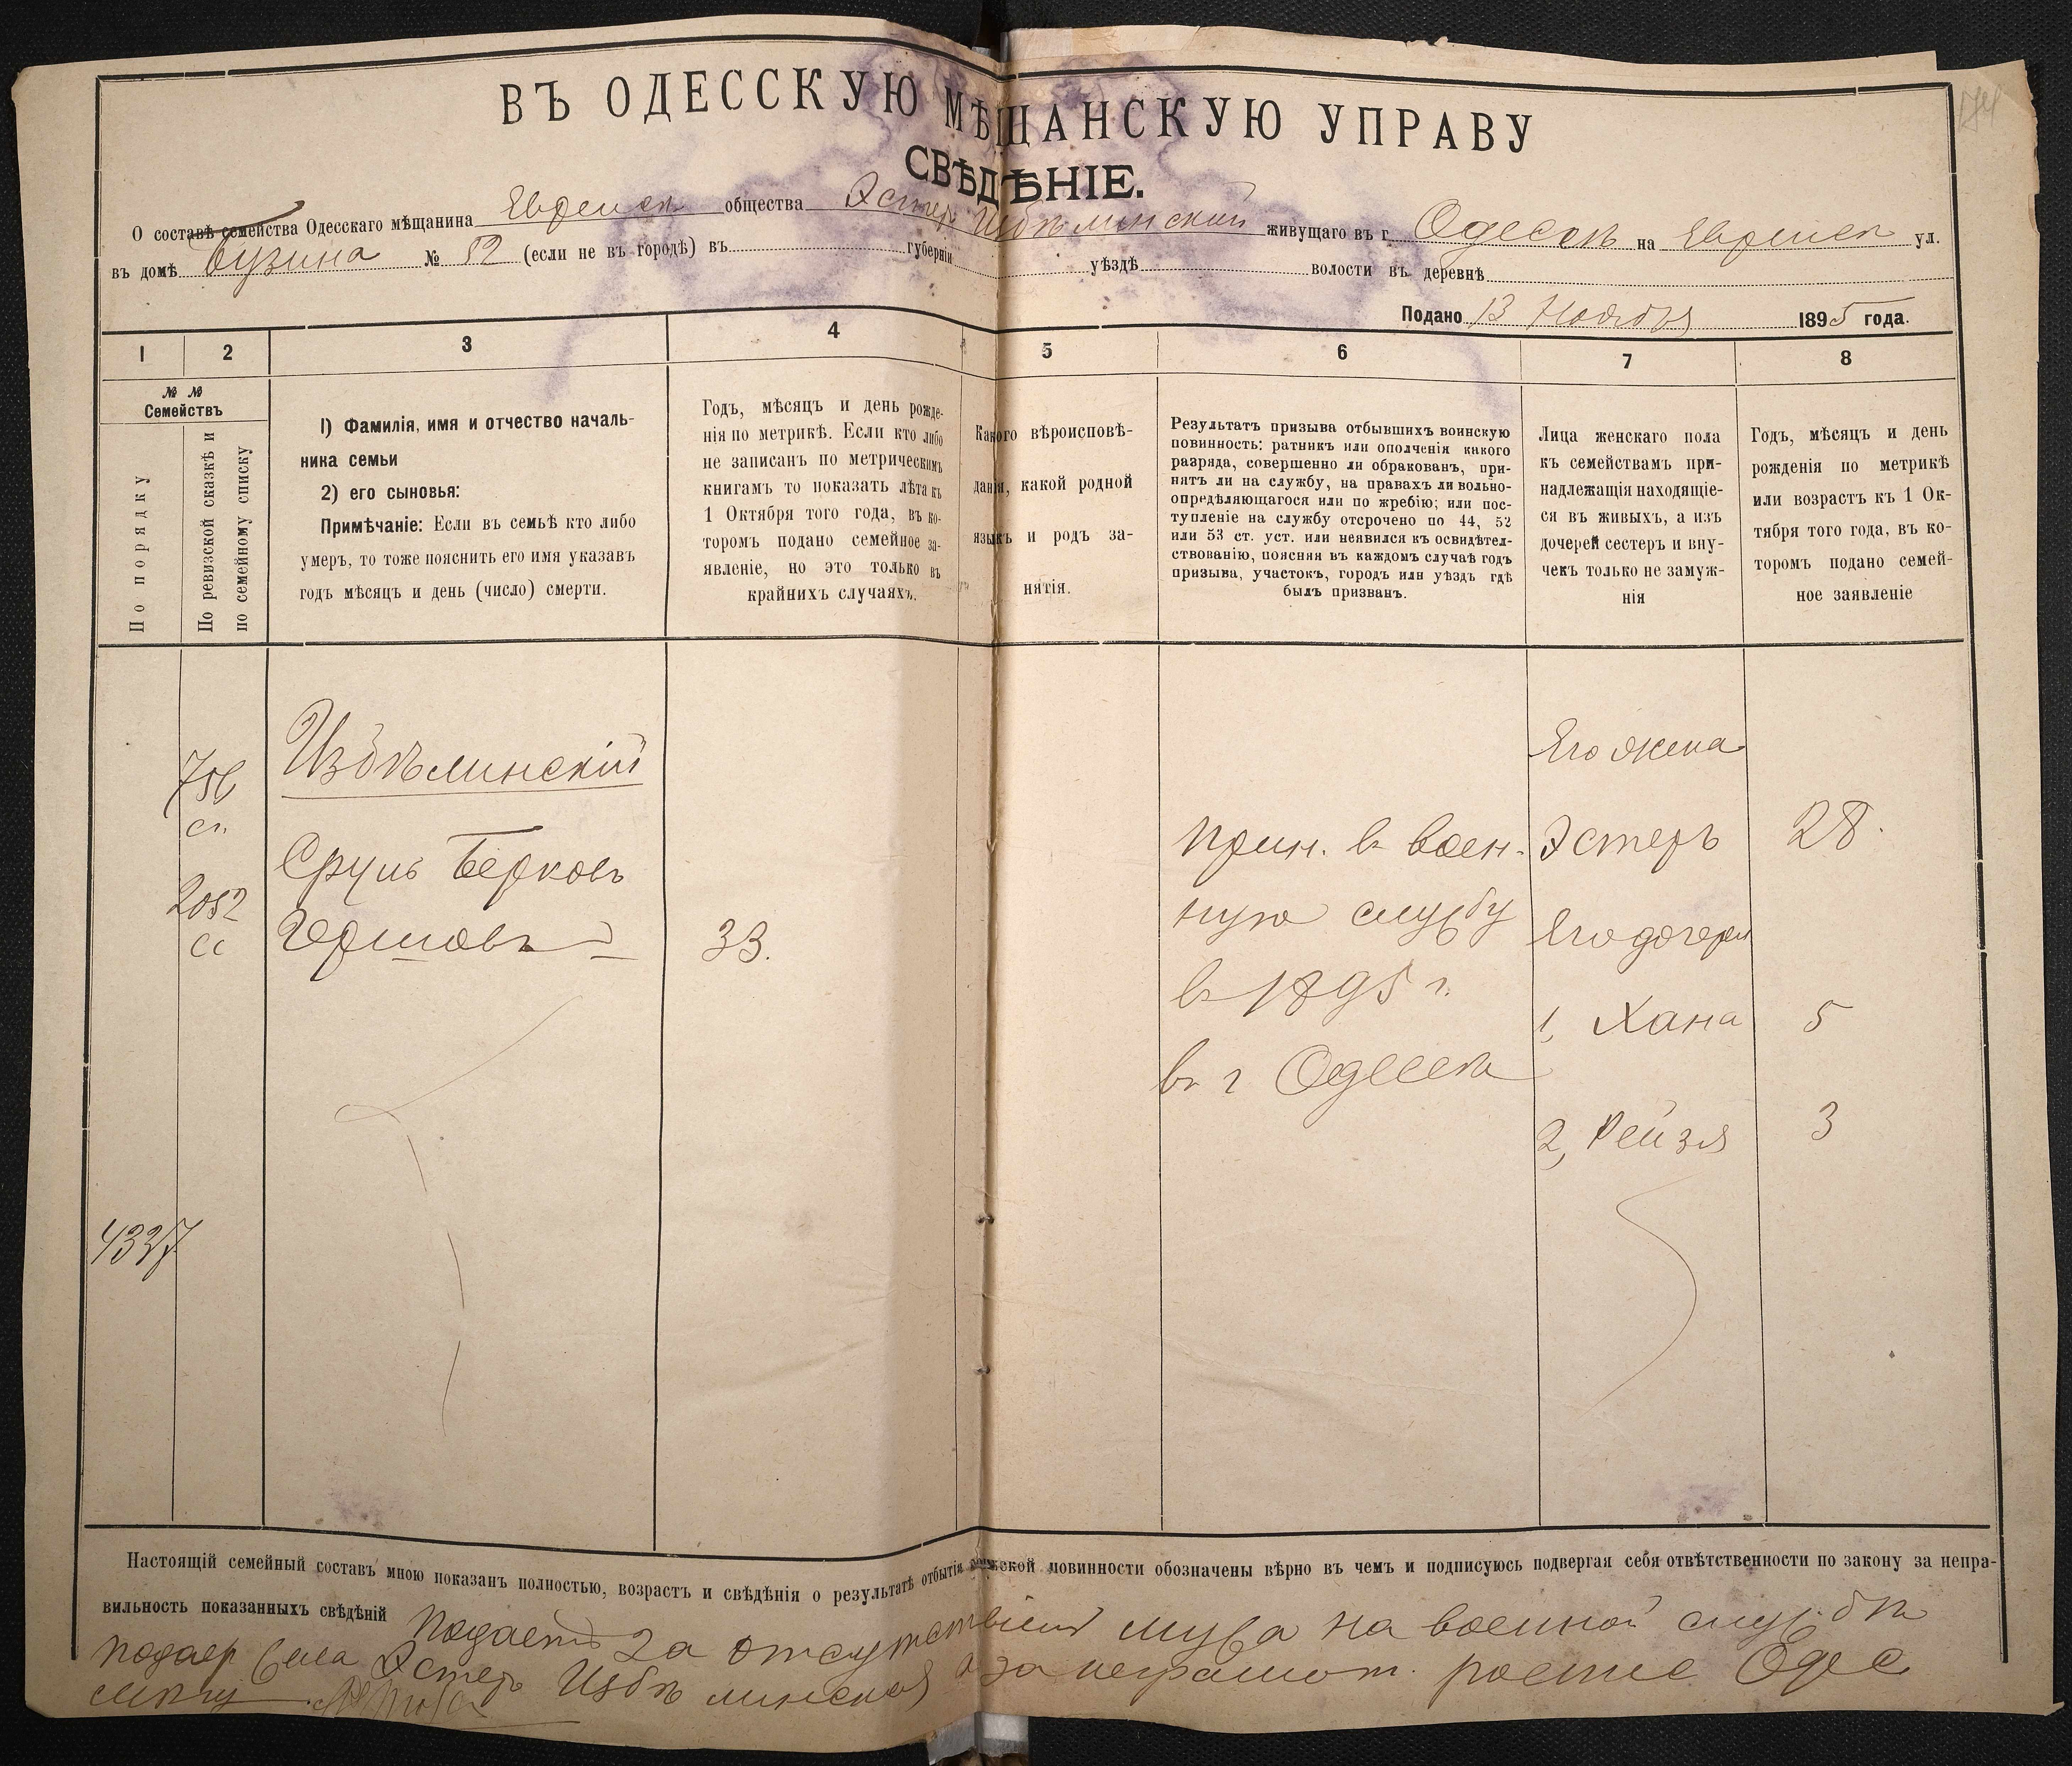 ВЪ ОДЕССКУЮ МѢЩАНСКУЮ УПРАВУ
СВѢДѢНІЕ.
О составѣ семейства Одесскаго мѣщанина Еврейск общества Эстер Избѣлинский живущаго въ г. Одессѣ на Еврейск ул.
въ домѣ Бузина № 52 (если не въ городѣ) въ губерніи уѣздѣ волости въ деревнѣ
Подано 13 Ноября 1895 года.
1 2 3 4 5 6 7 8
№ № Семействъ
По порядку
По ревизской сказкѣ и
по семейному списку
1) Фамилія, имя и отчество началь-
ника семьи
2) его сыновья:
Примѣчаніе: Если въ семьѣ кто либо
умеръ, то тоже пояснить его имя указавъ
годъ мѣсяцъ и день (число) смерти.
Годъ, мѣсяцъ и день рожде-
нія по метрикѣ. Если кто либо
не записанъ по метрическимъ
книгамъ то показать лѣта къ
1 Октября того года, въ ко-
торомъ подано семейное за-
явленіе, но это только въ
крайнихъ случаяхъ.
Какого вѣроисповѣ-
данія, какой родной
языкъ и родъ за-
нятія.
Результатъ призыва отбывшихъ воинскую
повинность: ратникъ или ополченія какого
разряда, совершенно ли обракованъ, при-
нятъ ли на службу, на правахъ ли вольно-
опредѣляющагося или по жребію; или пос-
тупленіе на службу отсрочено по 44, 52
или 53 ст. уст. или неявился къ освидѣтел-
ствованію, поясняя въ каждомъ случаѣ годъ
призыва, участокъ, городъ или уѣздъ гдѣ
былъ призванъ.
Лица женскаго пола
къ семействамъ при-
надлежащія находящіе-
ся въ живыхъ, а изъ
дочерей сестеръ и вну-
чекъ только не замуж-
нія
Годъ, мѣсяцъ и день
рожденія по метрикѣ
или возрастъ къ 1 Ок-
тября того года, въ ко-
торомъ подано семей-
ное заявленіе
756
ст.
2052
сс
4337
Избѣлинскій
Сруль Берковъ
Гершовъ
33.
Прин. въ воен-
ную службу
въ 1895 г.
въ г Одессѣ
Его жена
Эстеръ 28.
Его дочери
1, Хана 5
2, Рейзя 3
Настоящій семейный составъ мною показанъ полностью, возрастъ и свѣдѣнія о результатѣ отбытія воинской повинности обозначены вѣрно въ чемъ и подписуюсь подвергая себя отвѣтственности по закону за непра-
вильность показанныхъ свѣдѣній Подаетъ за отсутствіем мужа на военной службѣ
Эстеръ Избѣлинская а за неграмот. Одес